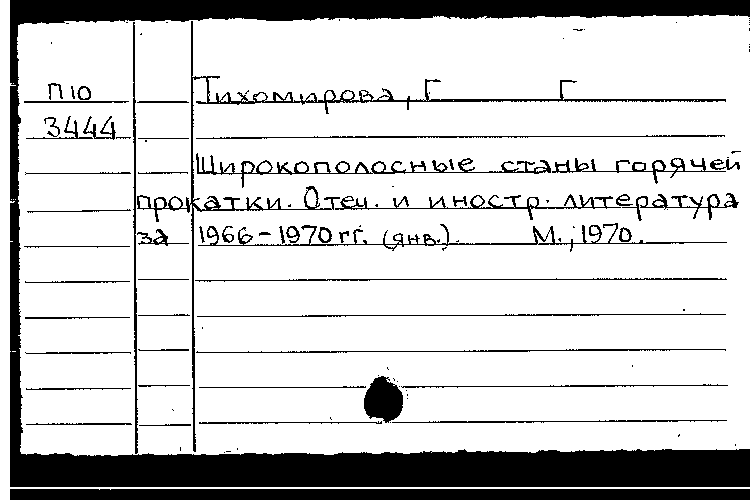 П10
Тихомирова, Г Г
3444
Широкополосные станы горячей
прокатки. Отеч. и иностр. литература
за 1966-1970 гг. (янв.). М., 1970.